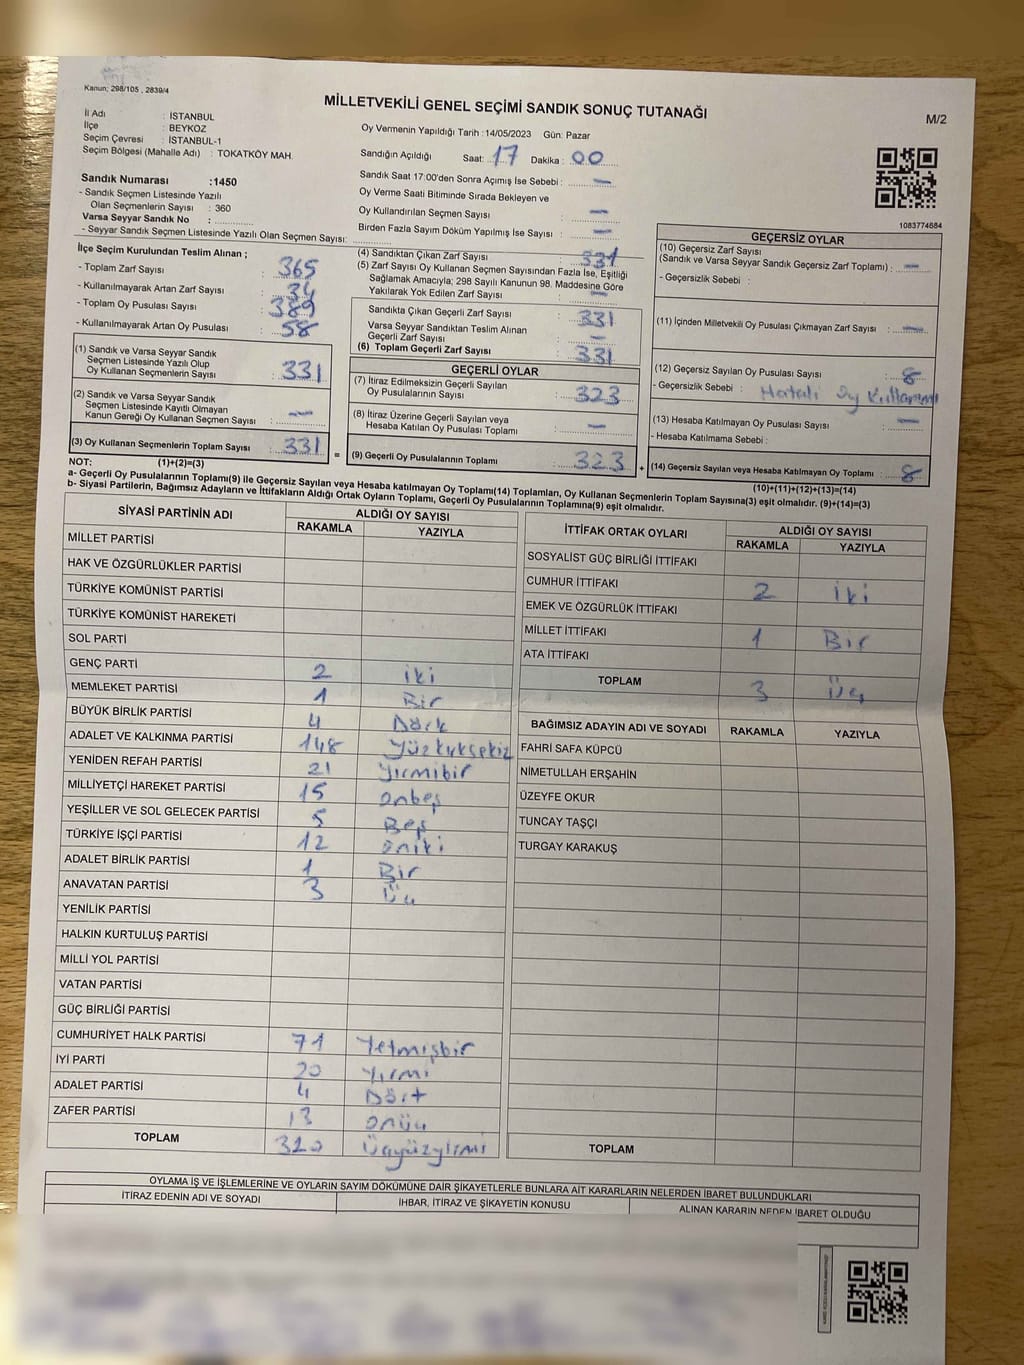 Kanun; 298/105 , 2839/4
MİLLETVEKİLİ GENEL SEÇİMİ SANDIK SONUÇ TUTANAĞI
M/2
İl Adı : İSTANBUL
İlçe : BEYKOZ
Seçim Çevresi : İSTANBUL-1
Seçim Bölgesi (Mahalle Adı) : TOKATKÖY MAH.
Sandık Numarası :1450
- Sandık Seçmen Listesinde Yazılı
Olan Seçmenlerin Sayısı : 360
Varsa Seyyar Sandık No :
- Seyyar Sandık Seçmen Listesinde Yazılı Olan Seçmen Sayısı:
Oy Vermenin Yapıldığı Tarih :14/05/2023 Gün: Pazar
Sandığın Açıldığı Saat: 17 Dakika : 00
Sandık Saat 17:00'den Sonra Açımış İse Sebebi : —
Oy Verme Saati Bitiminde Sırada Bekleyen ve
Oy Kullandırılan Seçmen Sayısı : —
Birden Fazla Sayım Döküm Yapılmış İse Sayısı : —
1083774684
İlçe Seçim Kurulundan Teslim Alınan ;
- Toplam Zarf Sayısı : 365
- Kullanılmayarak Artan Zarf Sayısı : 34
- Toplam Oy Pusulası Sayısı : 389
- Kullanılmayarak Artan Oy Pusulası : 58
(1) Sandık ve Varsa Seyyar Sandık
Seçmen Listesinde Yazılı Olup
Oy Kullanan Seçmenlerin Sayısı : 331
(2) Sandık ve Varsa Seyyar Sandık
Seçmen Listesinde Kayıtlı Olmayan
Kanun Gereği Oy Kullanan Seçmen Sayısı : —
(3) Oy Kullanan Seçmenlerin Toplam Sayısı : 331
(4) Sandıktan Çıkan Zarf Sayısı : 331
(5) Zarf Sayısı Oy Kullanan Seçmen Sayısından Fazla İse, Eşitliği
Sağlamak Amacıyla; 298 Sayılı Kanunun 98. Maddesine Göre
Yakılarak Yok Edilen Zarf Sayısı : —
Sandıkta Çıkan Geçerli Zarf Sayısı : 331
Varsa Seyyar Sandıktan Teslim Alınan
Geçerli Zarf Sayısı : —
(6) Toplam Geçerli Zarf Sayısı : 331
GEÇERLİ OYLAR
(7) İtiraz Edilmeksizin Geçerli Sayılan
Oy Pusulalarının Sayısı : 323
(8) İtiraz Üzerine Geçerli Sayılan veya
Hesaba Katılan Oy Pusulası Toplamı : —
= (9) Geçerli Oy Pusulalarının Toplamı : 323
GEÇERSİZ OYLAR
(10) Geçersiz Zarf Sayısı
(Sandık ve Varsa Seyyar Sandık Geçersiz Zarf Toplamı) : —
- Geçersizlik Sebebi :
(11) İçinden Milletvekili Oy Pusulası Çıkmayan Zarf Sayısı : —
(12) Geçersiz Sayılan Oy Pusulası Sayısı : 8
- Geçersizlik Sebebi : Hatalı oy kullanımı
(13) Hesaba Katılmayan Oy Pusulası Sayısı : —
- Hesaba Katılmama Sebebi :
+ (14) Geçersiz Sayılan veya Hesaba Katılmayan Oy Toplamı : 8
NOT: (1)+(2)=(3)
(10)+(11)+(12)+(13)=(14)
a- Geçerli Oy Pusulalarının Toplamı(9) ile Geçersiz Sayılan veya Hesaba katılmayan Oy Toplamı(14) Toplamları, Oy Kullanan Seçmenlerin Toplam Sayısına(3) eşit olmalıdır. (9)+(14)=(3)
b- Siyasi Partilerin, Bağımsız Adayların ve İttifakların Aldığı Ortak Oyların Toplamı, Geçerli Oy Pusulalarının Toplamına(9) eşit olmalıdır.
SİYASİ PARTİNİN ADI ALDIĞI OY SAYISI
RAKAMLA YAZIYLA
MİLLET PARTİSİ
HAK VE ÖZGÜRLÜKLER PARTİSİ
TÜRKİYE KOMÜNİST PARTİSİ
TÜRKİYE KOMÜNİST HAREKETİ
SOL PARTİ
GENÇ PARTİ 2 iki
MEMLEKET PARTİSİ 1 Bir
BÜYÜK BİRLİK PARTİSİ 4 Dört
ADALET VE KALKINMA PARTİSİ 148 Yüzkırksekiz
YENİDEN REFAH PARTİSİ 21 Yirmibir
MİLLİYETÇİ HAREKET PARTİSİ 15 onbeş
YEŞİLLER VE SOL GELECEK PARTİSİ 5 Beş
TÜRKİYE İŞÇİ PARTİSİ 12 oniki
ADALET BİRLİK PARTİSİ 1 Bir
ANAVATAN PARTİSİ 3 Üç
YENİLİK PARTİSİ
HALKIN KURTULUŞ PARTİSİ
MİLLİ YOL PARTİSİ
VATAN PARTİSİ
GÜÇ BİRLİĞİ PARTİSİ
CUMHURİYET HALK PARTİSİ 71 Yetmişbir
İYİ PARTİ 20 Yirmi
ADALET PARTİSİ 4 Dört
ZAFER PARTİSİ 13 onüç
TOPLAM 320 Üçyüzyirmi
İTTİFAK ORTAK OYLARI ALDIĞI OY SAYISI
RAKAMLA YAZIYLA
SOSYALİST GÜÇ BİRLİĞİ İTTİFAKI
CUMHUR İTTİFAKI 2 iki
EMEK VE ÖZGÜRLÜK İTTİFAKI
MİLLET İTTİFAKI 1 Bir
ATA İTTİFAKI
TOPLAM 3 Üç
BAĞIMSIZ ADAYIN ADI VE SOYADI RAKAMLA YAZIYLA
FAHRİ SAFA KÜPCÜ
NİMETULLAH ERŞAHİN
ÜZEYFE OKUR
TUNCAY TAŞÇI
TURGAY KARAKUŞ
TOPLAM
OYLAMA İŞ VE İŞLEMLERİNE VE OYLARIN SAYIM DÖKÜMÜNE DAİR ŞİKAYETLERLE BUNLARA AİT KARARLARIN NELERDEN İBARET BULUNDUKLARI
İTİRAZ EDENİN ADI VE SOYADI İHBAR, İTİRAZ VE ŞİKAYETİN KONUSU ALINAN KARARIN NEDEN İBARET OLDUĞU